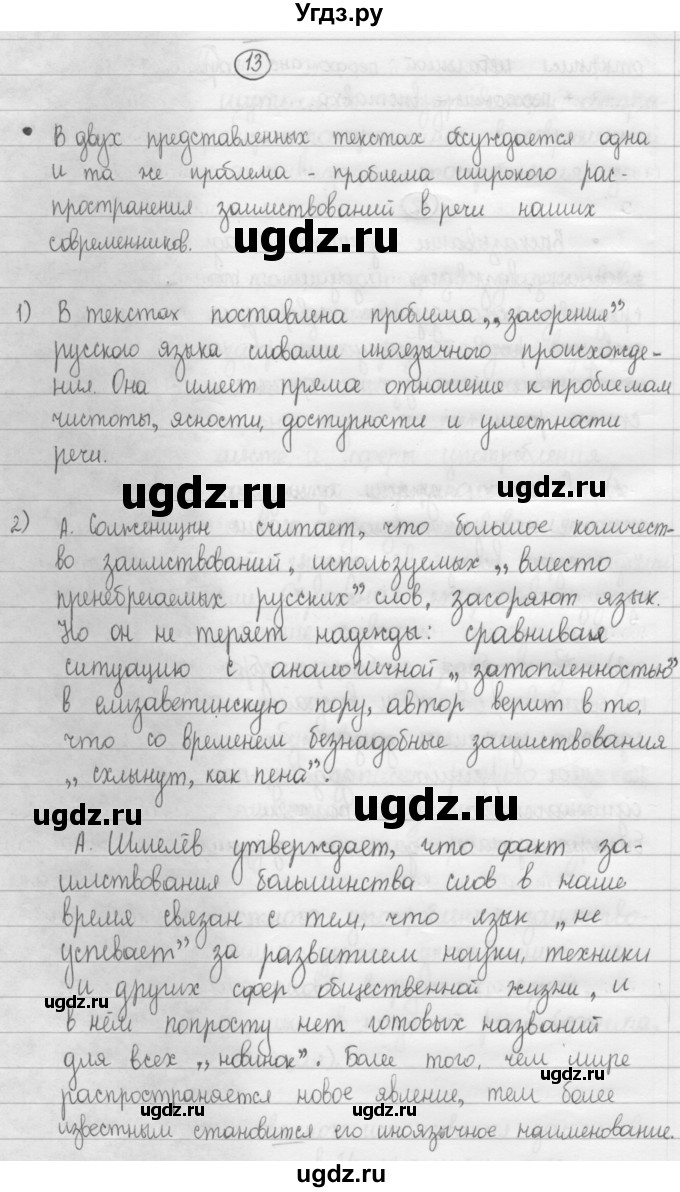 Угдз.ру
13
• В двух представленных текстах обсуждается одна
и та же проблема - проблема широкого рас-
пространения заимствований в речи наших
современников.
ugdz.ru
1) В текстах поставлена проблема „засорения”
русского языка словами иноязычного происхожде-
ния. Она имеет прямое отношение к проблемам
чистоты, ясности, доступности и уместности
речи.
ugdz.ru
2) А. Солженицын считает, что большое количест-
во заимствований, используемых „вместо
пренебрегаемых русских” слов, засоряют язык.
Но он не теряет надежды: сравнивая
ситуацию с аналогичной „затопленностью”
в елизаветинскую пору, автор верит в то,
что со временем безнадобные заимствования
„схлынут, как пена”.
ugdz.ru
ugdz.ru
А. Шмелёв утверждает, что факт за-
имствования большинства слов в наше
время связан с тем, что язык „не
успевает” за развитием науки, техники
ugdz.ru
и других сфер общественной жизни, и
в нём попросту нет готовых названий
для всех „новинок”. Более того, чем шире
ugdz.ru
распространяется новое явление, тем более
ugdz.ru
ugdz.ru
известным становится его иноязычное наименование.
ugdz.ru